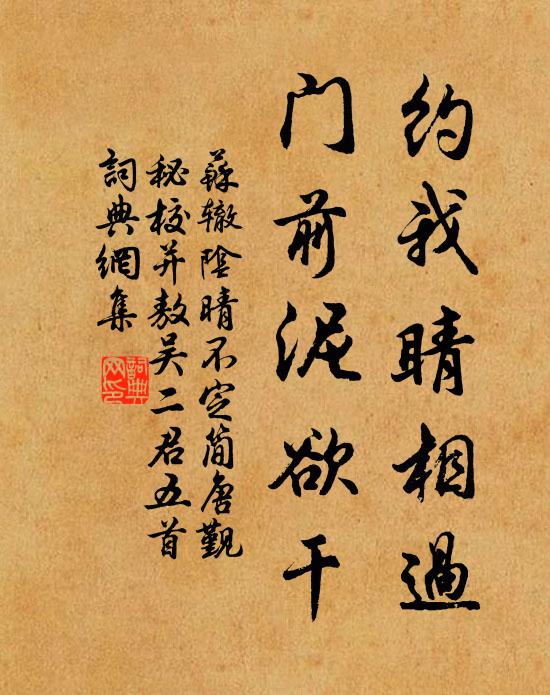 约我晴相過
门前泥欲干
蘇辙陰晴不定简唐覲
秘校并敖吴二君五首
詞典網集
詞典网印